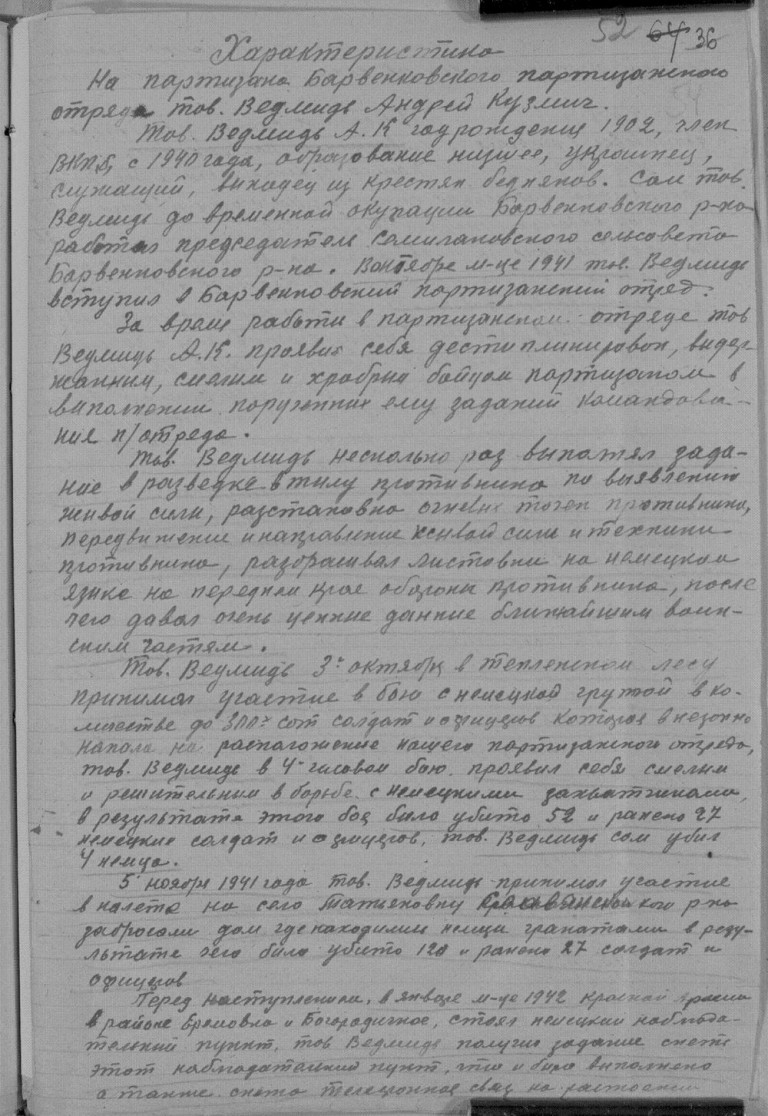 52 64 36
Характеристика
На партизана Барвенковского партизанского
отряда тов. Ведмидь Андрей Кузмич.
Тов. Ведмидь А. К год рождения 1902, член
ВКПб, с 1940 года, образование низшее, украинец,
служащий, выходец из крестян бедняков. Сам тов.
Ведмидь до временной окупации Барвенковского р-на
работал председателем сельсовета
Барвенковского р-на. В октябре м-це 1941 тов. Ведмидь
вступил в Барвенковский партизанский отряд.
За время работы в партизанском отряде тов
Ведмидь А.К. проявил себя десциплинирован, выдер-
жанным, смелым и храбрым бойцом партизаном в
выполнении порученных ему заданий командова-
ния п/отряда.
Тов. Ведмидь несколько раз выполнял зада-
ние в разведке в тылу противника по выявлению
живой силы, разстановка огневых точек противника,
передвижение и направление живой силы и техники
противника, разбрасывал листовки на немецком
языке на переднем крае обороны противника, после
чего давал очень ценные данные ближайшим воин-
ским частям.
Тов. Ведмидь 3го октября в теплинском лесу
принимал участие в бою с немецкой групой в ко-
личестве до 300 сот солдат и офицеров которая внезапно
напала на расположение нашего партизанского отряда,
тов. Ведмидь в 4х часовом бою проявил себя смелым
и решительным в борьбе с немецкими захватчиками,
в результате этого боя было убито 52 и ранено 27
немецких солдат и офицеров, тов. Ведмидь сам убил
4 немца.
5 ноября 1941 года тов. Ведмидь принимал участие
в налете на село Татьяновку Славянского р-на
забросали дом где находились немцы гранатами в резу-
льтате чего было убито 120 и ранено 27 солдат и
офицеров
Перед наступлением, в январе м-це 1942 красной армии
в районе и Богородичное, стоял немецкий наблюда-
тельный пункт, тов Ведмидь получил задание снять
этот наблюдательный пункт, что и было выполнено
а также снята телефонная связ на растоянии